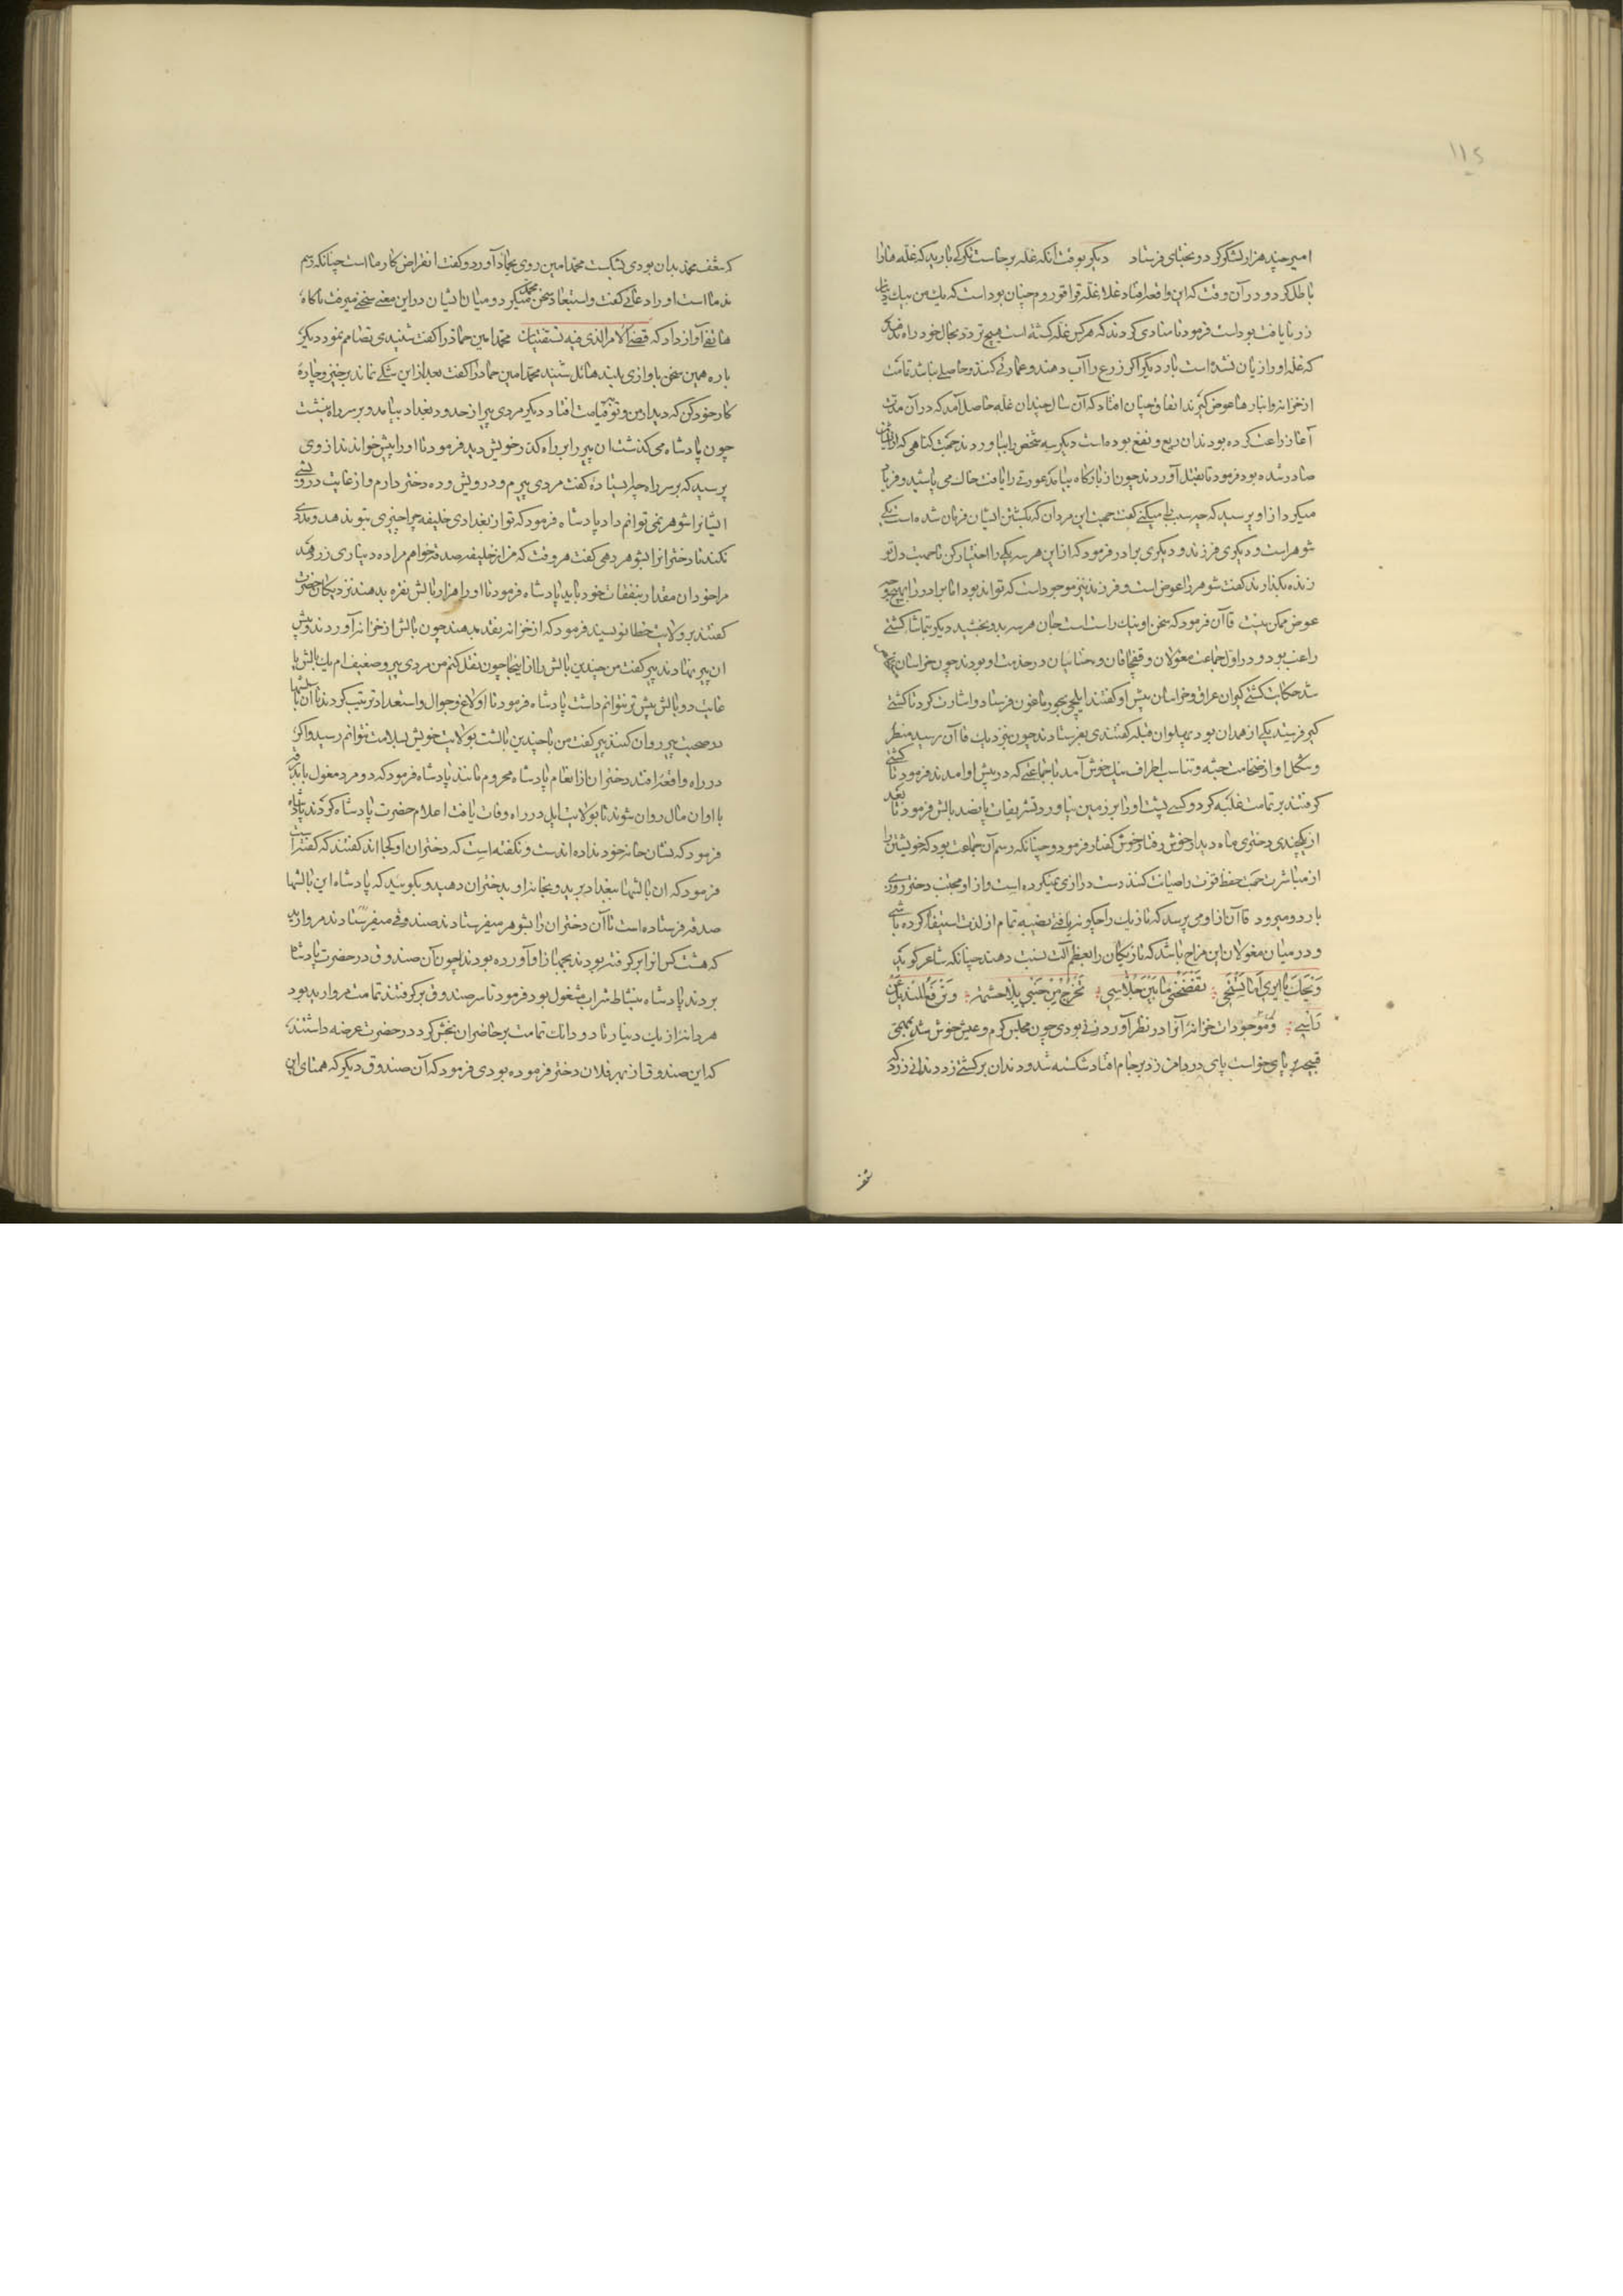 ۱۱۵
امیر چند هزار لشکر کرد و بختای فرستاد دیگر بوقت آنکه غله برخاست تگرگی بارید که غله هارا
باطل کرد و در آن وقت که این واقعه افتاد غلا غله قراقوروم چنان بوداست که یک من بیک دینار
زر نایافت بوداست فرمود تا منادی کردند که هرکس غله کشته است هیچ تردد بحال خود راه ندهد
که غله اورا زیان نشده است بار دیگر اگر زرع را آب دهند و عمارتی کنند و حاصلی نباشد تمامت
از خزانه و انبارها عوض گیرند اتفاق چنان افتاد که آن سال چندان غله حاصل آمد که در آن مدت
آغاز زراعت کرده بودند ان ریع و نفع بوده است دیگر سه شخص را بیاوردند جهت گناهی که از ایشان
صادر شده بود فرمود تا بقتل آوردند چون از بارگاه بیامد عورتی را یافت خاک می پاشید و فریاد
میکرد از او پرسید که چه سبب میکنی گفت جهت این مردان که بکشتن ایشان فرمان شده است یکی
شوهر است و دیگری فرزند و دیگری برادر فرمود که از این هر سه یکی را اختیار کن تا جهت دل تو
زنده بگذارند گفت شوهر را عوض است و فرزند نیز موجود است که تواند بود اما برادر را بهیچ وجه
عوض ممکن نیست قاآن فرمود که سخن او نیک راست است جان هر سه بدو بخشید دیگر بتماشا کشتی
راغب بود و در اول جماعت مغولان و قفچاقان و ختائیان در خدمت او بودند چون خراسان
شد حکایت کشتی گیران عراق و خراسان پیش او گفتند ایلچی بجورماغون فرستاد و اشارت کرد تا کشتی
گیر فرستد یکی از همدان بود پهلوان فیله گفتندی بفرستادند چون بنزدیک قاآن رسید منظر
و شکل او از ضخامت جثه و تناسب اطراف نیک خوش آمد با جماعتی که در پیش او امدند فرمود تا کشتی
گرفتند بر تمامت غلبه کرد و کسی پشت اورا بر زمین نیاورد تشریفات پانصد بالش فرمود تا بعد
از یکچندی دختری ماه دیدار خوش رفتار خوش گفتار فرمود و چنانکه رسم آن جماعت بود که خویشتن را
از مباشرت جهت حفظ قوت را صیانت کنند دست درازی نمیکرده است و از او مجتنب دختر روزی
بارد و میرود قاآن از او می پرسد که تازیک را چگونه یافتی نصیبه تمام از لذت استیفا کرده باشی
و در میان مغولان این مزاح باشد که تازیکان را بعظم آلت نسبت دهند چنانکه شاعر گوید
وَیحَک یا ایری اما تستحی تفضحنی ما بین جلّاسی تخرج من جیبی
و موجودات خزانه را در نظر آورد زنی بودی چون مجلس گرم و عیش خوش شد
برپای خواست پای در دامن زد بر جام افتاد شکسته شد و دندان بر کشتی زد دندانی زرد که
سقف
که سقف محمد بدان بودی بشکست محمد امین روی بحماد آورد و گفت انقراض کار ما است چنانکه رسم
ندما است اورا دعائی گفت و استبعاد سخن محمد میکرد و میان ایشان در این معنی سخنی میرفت ناگاه
هاتفی آواز داد که قضی الامر الذی فیه تستفتیان محمد امین حماد را گفت شنیدی تضامم نمود دیگر
باره همین سخن باوازی بلند هائل شنید محمد امین حماد را گفت بعد از این شکی نماند برخیز و چاره
کار خود کن که دیدار من و تو بقیامت افتاد دیگر مردی پیر از حدود بغداد بیامد و بر سر راه بنشست
چون پادشاه می گذشت ان پیر را بر راه گذر خویش دید فرمود تا اورا پیش خواندند از وی
پرسید که بر سر راه چرا ایستاده گفت مردی پیرم و درویش و ده دختر دارم و از غایت درویشی
ایشانرا شوهر نمی توانم داد پادشاه فرمود که تو از بغدادی خلیفه چرا چیزی بتو ندهد و مددی
نکند تا دخترانرا بشوهر دهی گفت هر وقت که من از خلیفه صدقه خواهم مرا ده دیناری زر دهند
مرا خود ان مقدار بنفقات خود باید پادشاه فرمود تا اورا هزار بالش نقره بدهند نزدیکان حضرت
گفتند بر ولایت خطا نویسند فرمود که از خزانه نقد بدهند چون بالش از خزانه آوردند و پیش
ان پیر نهادند پیر گفت من چندین بالش را از اینجا چون نقل کنم من مردی پیر و ضعیف ام یک بالش یا
غایت دو بالش بیشتر نتوانم داشت پادشاه فرمود تا اولاغ و جوال و استعداد ترتیب کردند تا آن بالشها
در صحبت پیر روان کنند پیر گفت من با چندین بالشت بولایت خویش بسلامت نتوانم رسید و اگر
در راه واقعه افتد دختران از انعام پادشاه محروم مانند پادشاه فرمود که دو مرد مغول
با او ان مال روان شوند تا بولایت ایل در راه وفات یافت اعلام حضرت پادشاه کردند پادشاه
فرمود که نشان خانه خود نداده اند و نگفته است که دختران او کجا اند گفتند که گفته است
فرمود که ان بالشها ببغداد برید و بخانه او بدختران دهید و بگوئید که پادشاه این بالشها
صدقه فرستاده است تا آن دختران را بشوهر میفرستادند صندوقی میفرستادند مروارید
که هشت کس انرا بر گرفته بودند بجهاز او آورده بودند چون آن صندوق در حضرت پادشاه
بردند پادشاه بنشاط شراب مشغول بود فرمود تا سر صندوق برگرفتند تمامت مروارید بود
هر دانه از یک دینار تا دو دانک تمامت بر حاضران بخش کرد در حضرت عرضه داشتند
که این صندوق از بهر فلان دختر فرموده بودی فرمود که آن صندوق دیگر که همتای این